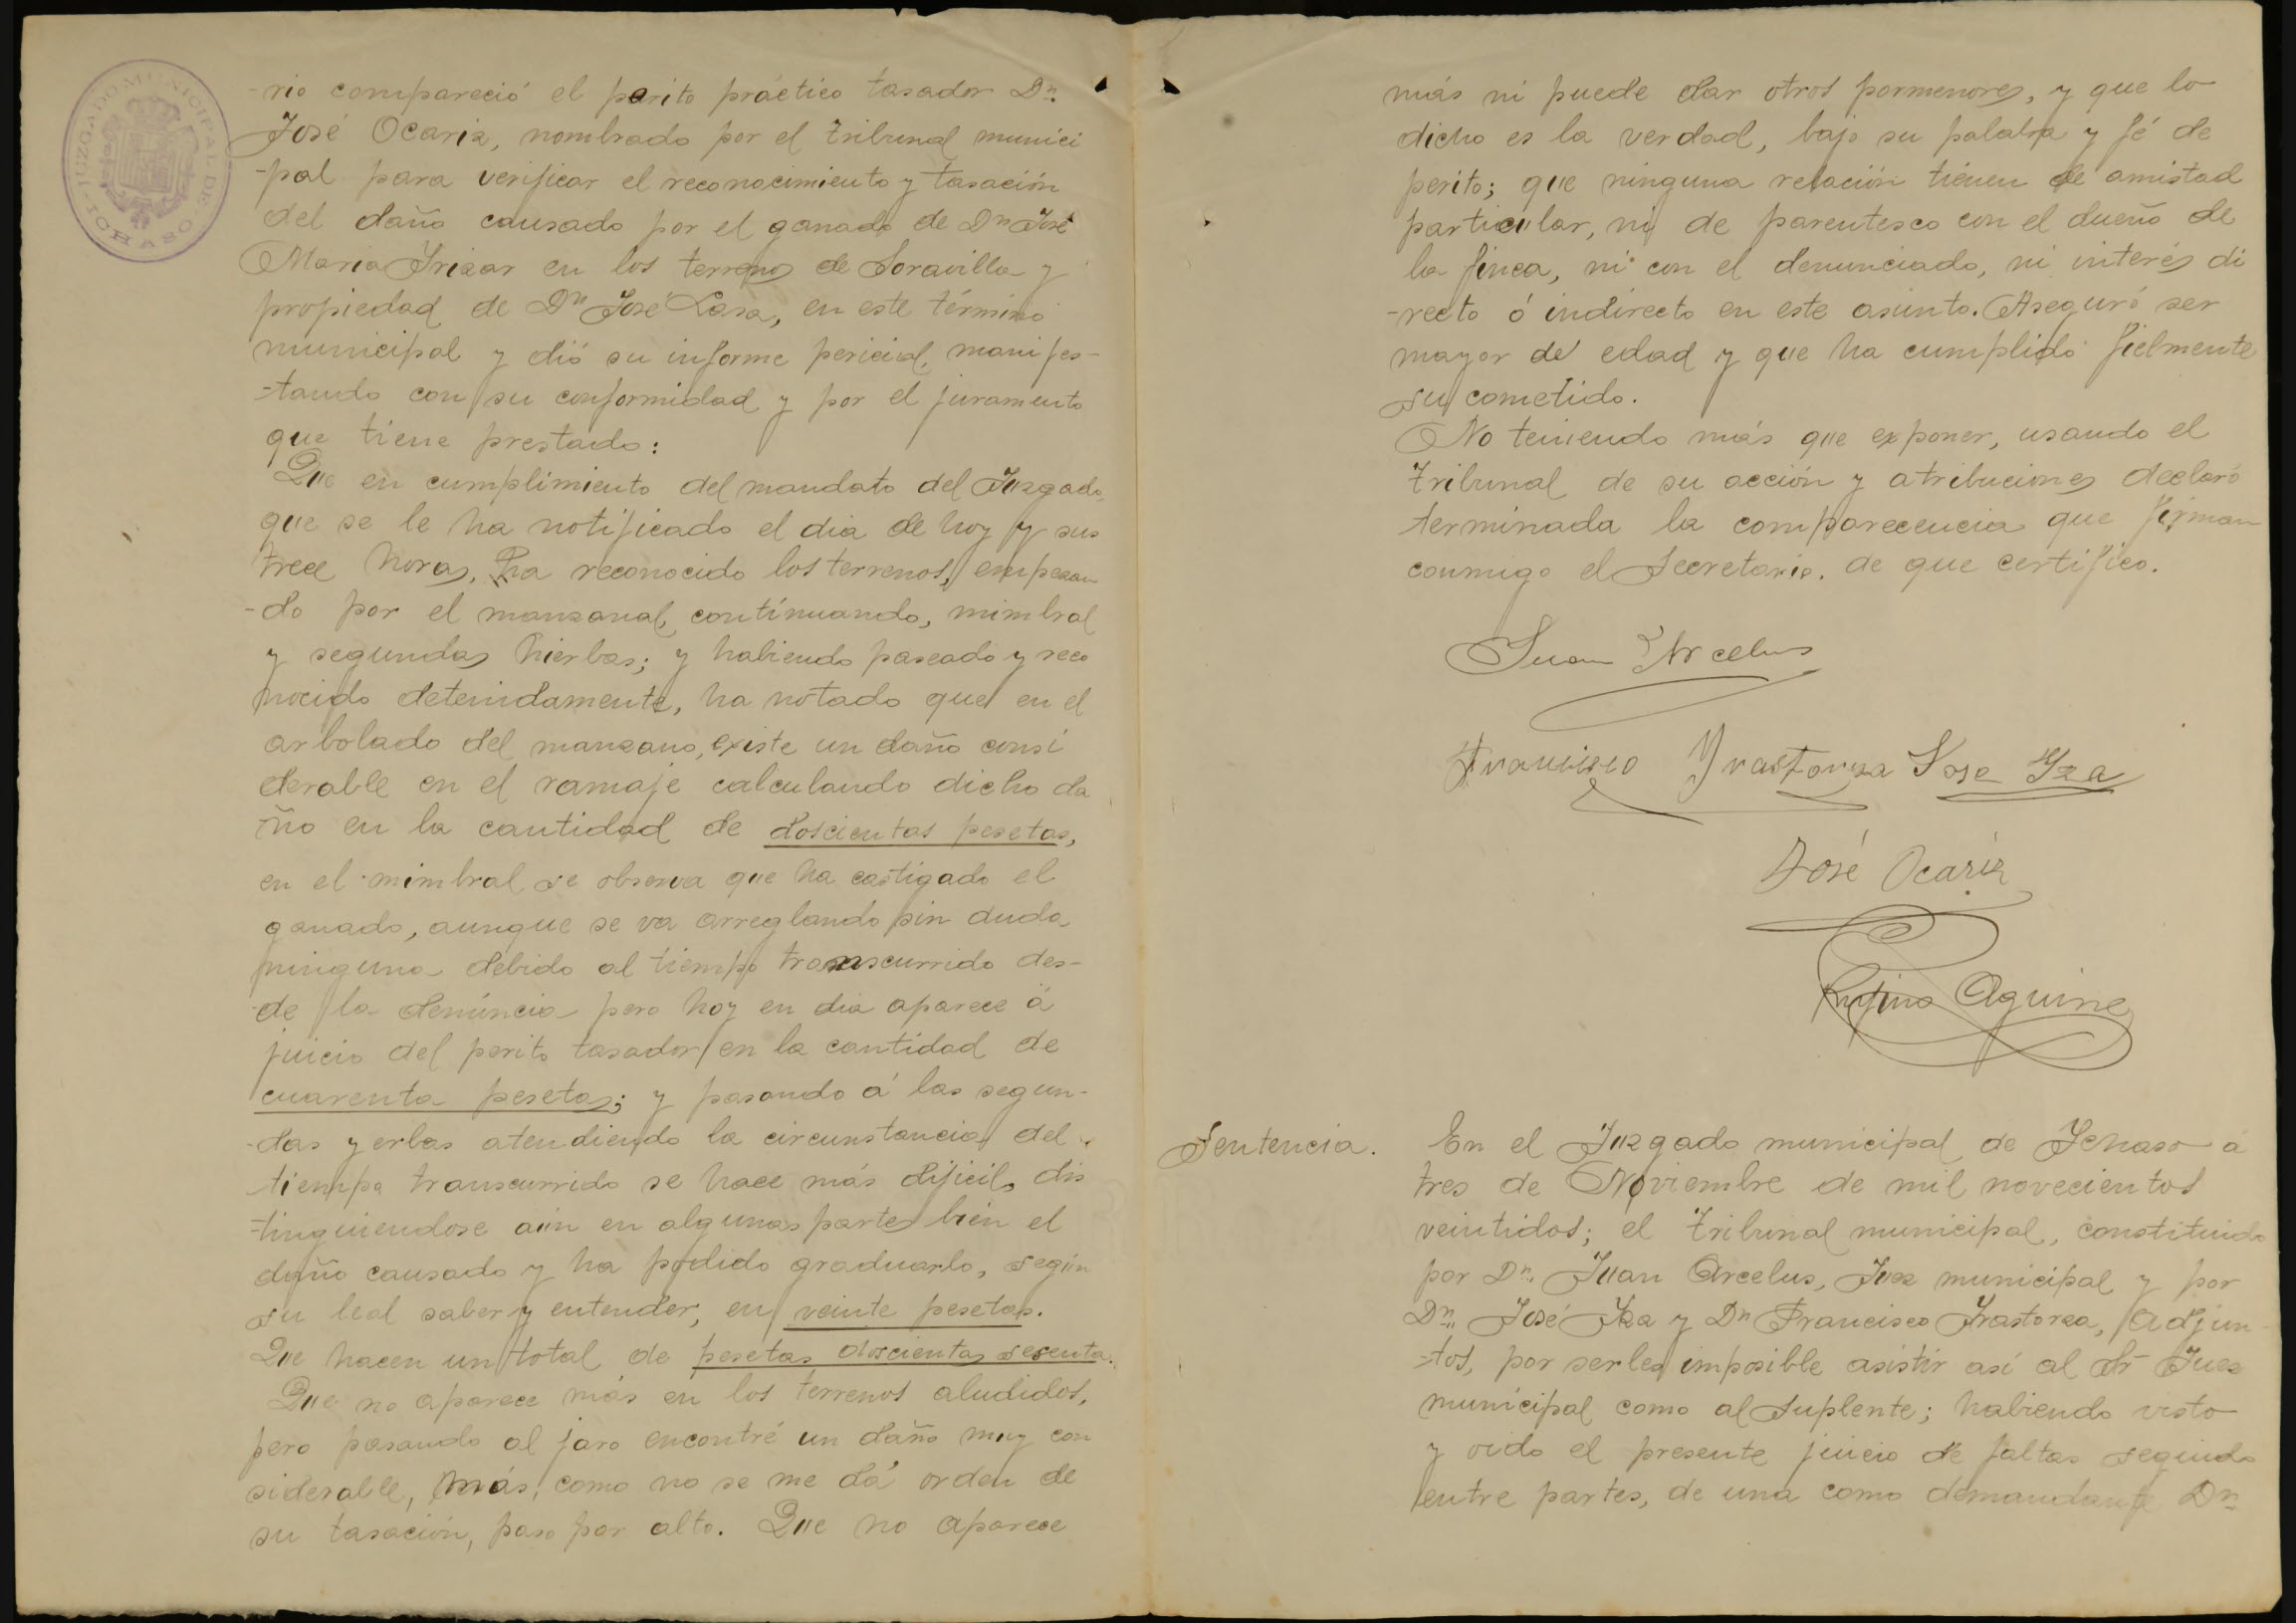 JUZGADO MUNICIPAL DE ICHASO
-rio compareció el perito práctico tasador Dn.
José Ocariz, nombrado por el tribunal munici
-pal para verificar el reconocimiento y tasación
del daño causado por el ganado de Dn José
Maria Irizar en los terrenos de Soravilla y
propiedad de Dn José Lasa, en este término
municipal y dió su informe pericial, manifes-
-tando con su conformidad y por el juramento
que tiene prestado:
Que en cumplimiento del mandato del Juzgado,
que se le ha notificado el dia de hoy y sus
trece horas, ha reconocido los terrenos, empezan
-do por el manzanal, continuando, mimbral
y segundas hierbas; y habiendo paseado y reco
nocido detenidamente, ha notado que en el
arbolado del manzano, existe un daño consi
derable en el ramaje calculando dicho da
ño en la cantidad de doscientas pesetas,
en el mimbral se observa que ha castigado el
ganado, aunque se va arreglando sin duda
ninguna debido al tiempo transcurrido des-
-de la denúncia pero hoy en dia aparece á
juicio del perito tasador en la cantidad de
cuarenta pesetas; y pasando á las segun-
-das yerbas atendiendo la circunstancia del
tiempo transcurrido se hace más dificil, dis
-tinguiendose aún en algunas partes bien el
daño causado y ha podido graduarlo, según
su leal saber y entender, en veinte pesetas.
Que hacen un total de pesetas doscientas sesenta.
Que no aparece más en los terrenos aludidos,
pero pasando al jaro encontré un daño muy con
siderable, más, como no se me dá orden de
su tasación, paso por alto. Que no aparece
más ni puede dar otros pormenores, y que lo
dicho es la verdad, bajo su palabra y fé de
perito; que ninguna relación tienen de amistad
particular, ni de parentesco con el dueño de
la finca, ni con el denunciado, ni interés di
-recto ó indirecto en este asunto. Aseguró ser
mayor de edad y que ha cumplido fielmente
su cometido.
No teniendo más que exponer, usando el
tribunal de su acción y atribuciones declaró
terminada la comparecencia que firman
conmigo el Secretario, de que certifico.
Juan Arcelus
Francisco Yrastorza José Yza
José Ocáriz
Rufino Aguirre
Sentencia. En el Juzgado municipal de Ichaso á
tres de Noviembre de mil novecientos
veintidos; el tribunal municipal, constituido
por Dn. Juan Arcelus, Juez municipal y por
Dn. José Iza y Dn Francisco Irastorza, Adjun
-tos, por serles imposible asistir así al Sr Juez
municipal como al Suplente; habiendo visto
y oido el presente juicio de faltas seguido
entre partes, de una como demandante Dn